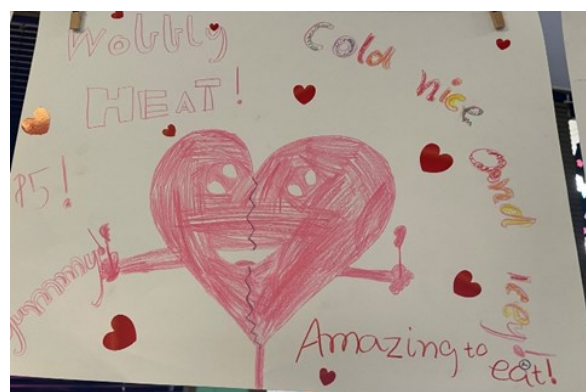 Wobbly
HEAT!
Cold nice
and
icey!
P5!
yummmmy!
Amazing to
eat!